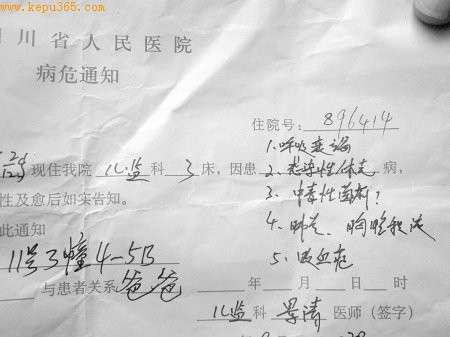 www.kepu365.com
川省人民医院
病危通知
住院号:896414
1.呼吸衰竭
现住我院儿监科3床,因患2.感染性休克病,
性及愈后如实告知。
3.中毒性菌痢?
此通知
4.肺炎、胸腔积液
11号3幢4-5B
5.败血症
与患者关系爸爸
年 月 日 时
儿监科 医师(签字)